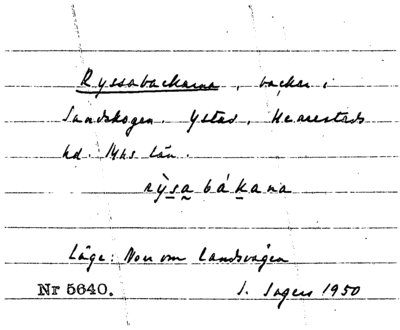 Ryssabackarna, backar i
Sandskogen. Ystad, Herrestads
hd. Mhs län.
rỳsa bákana
Läge: Norr om landsvägen
Nr 5640. I. Ingers 1950